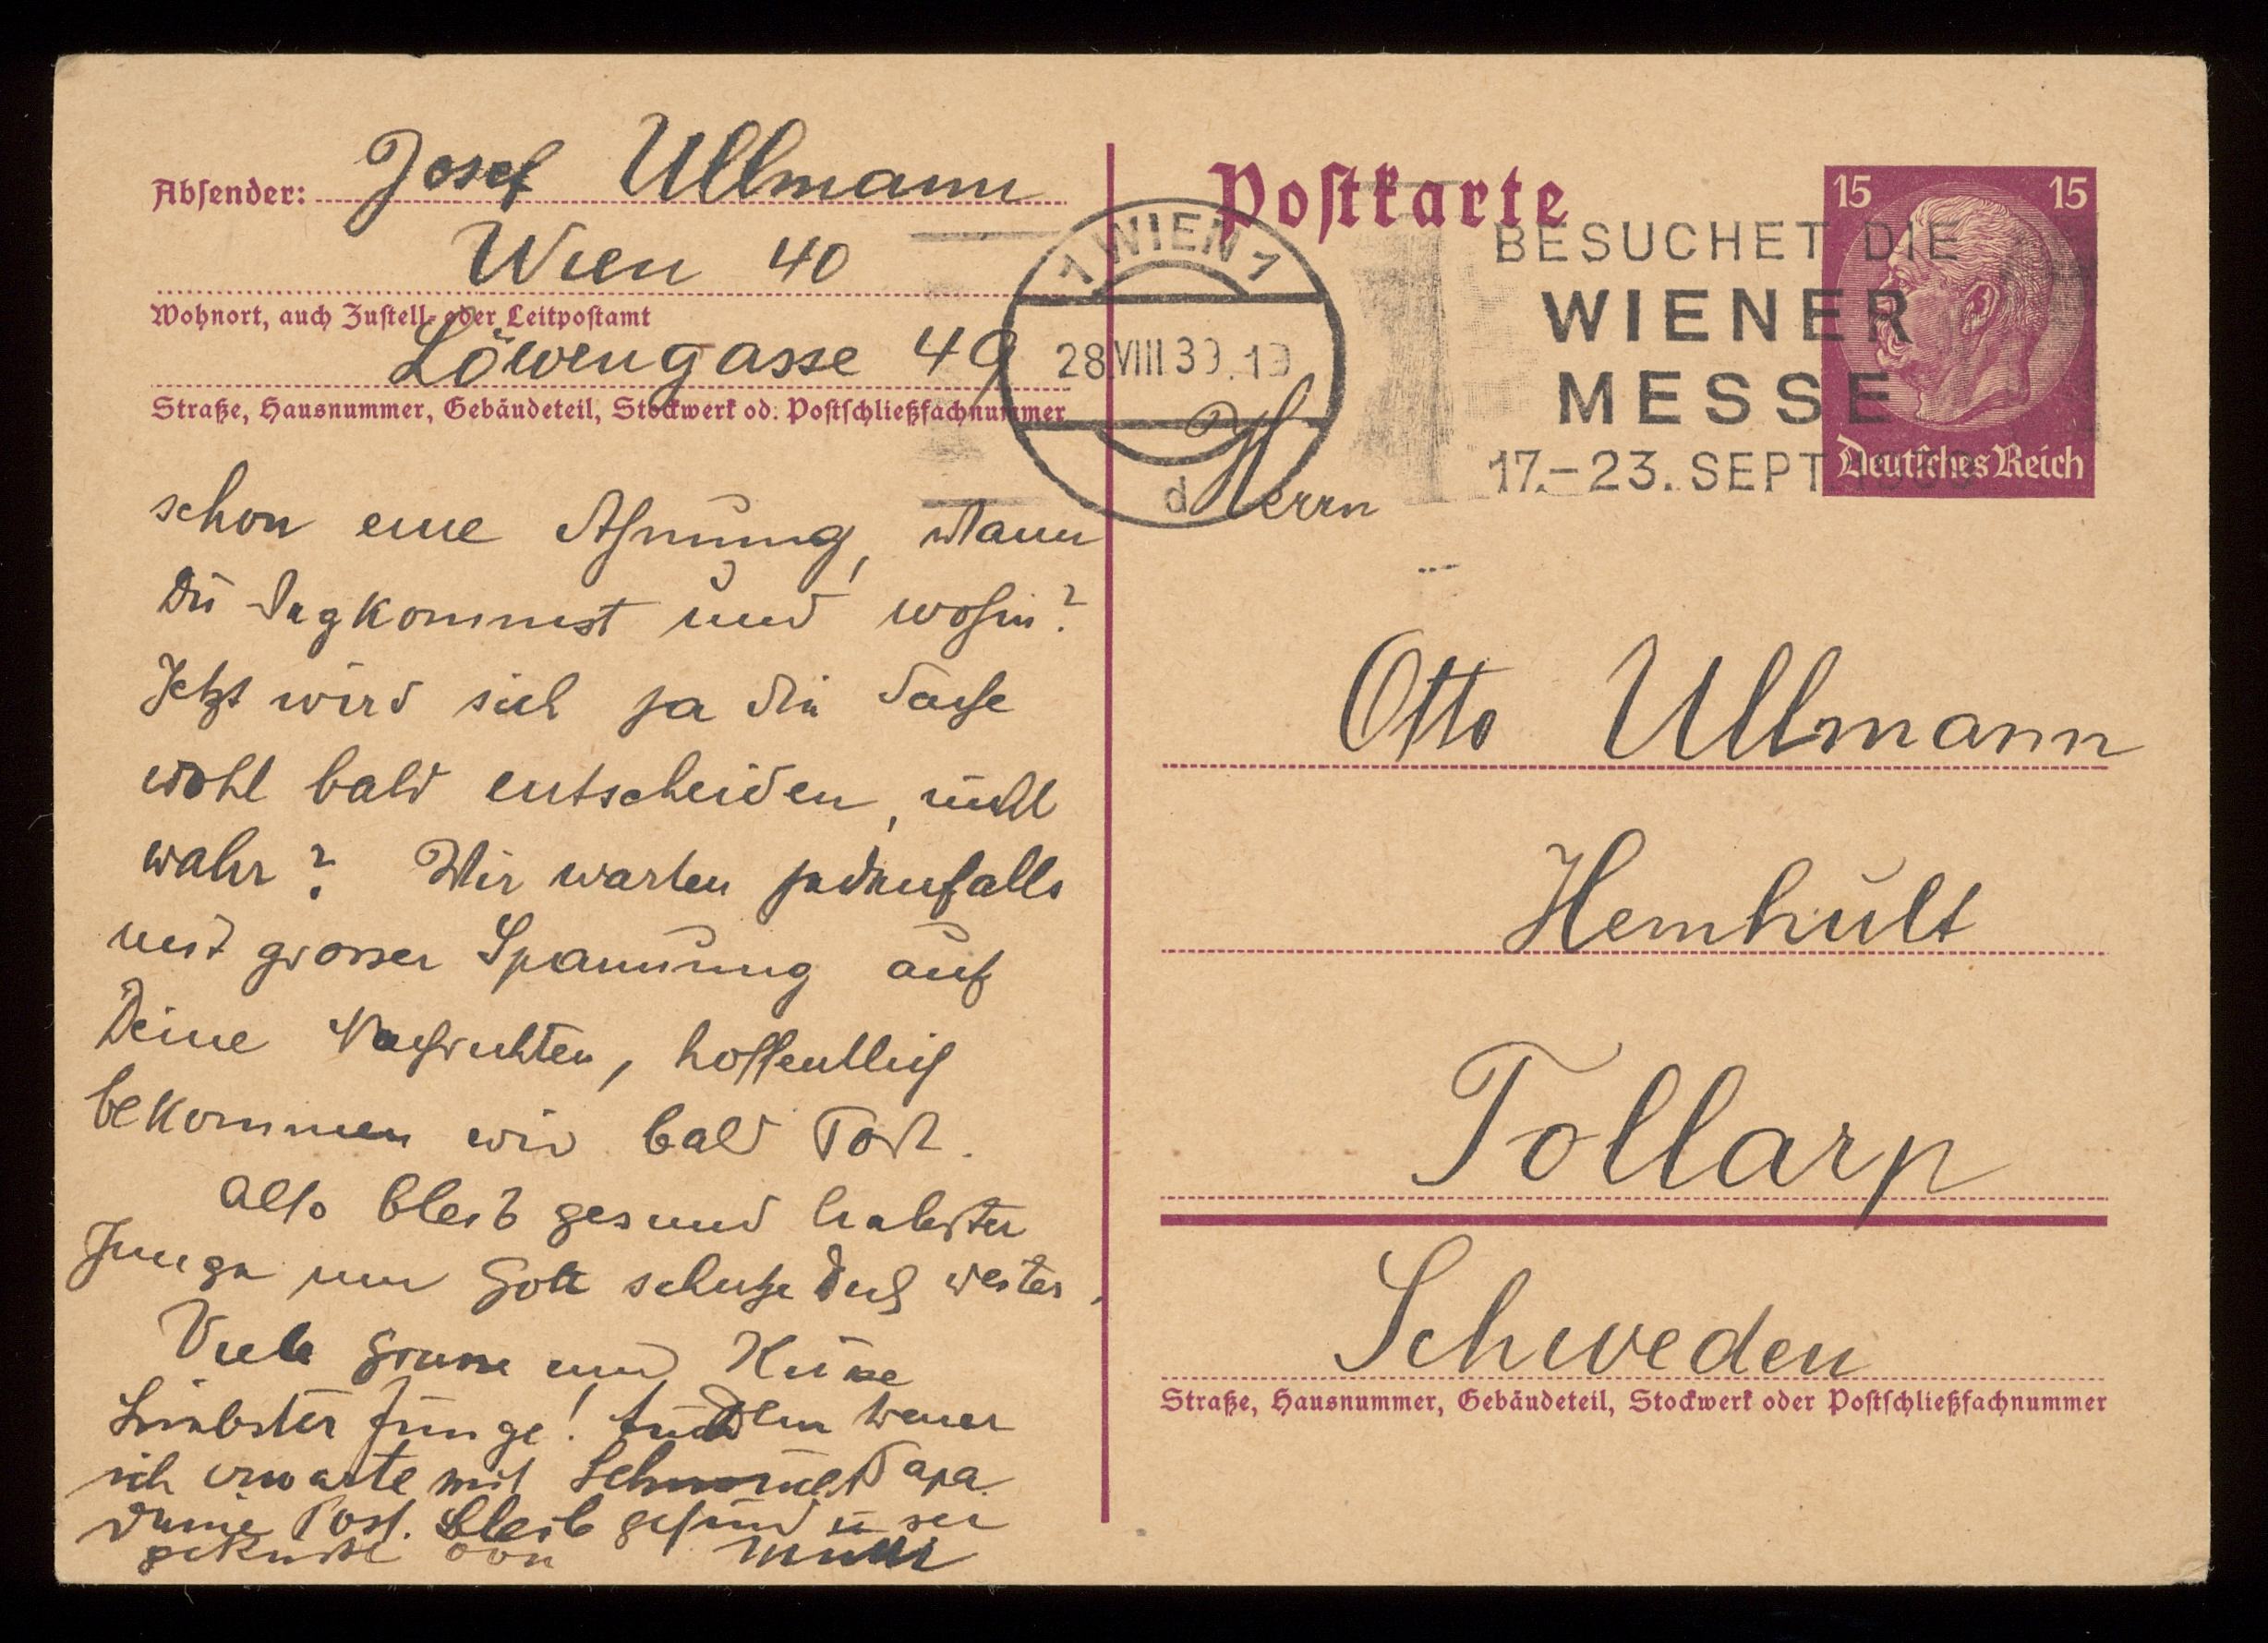 Absender: Josef Ullmann
Wien 40
Wohnort, auch Zustell- oder Leitpostamt
Löwengasse 49
Straße, Hausnummer, Gebäudeteil, Stockwerk od. Postschließfachnummer
schon eine Ahnung, wann
Du wegkommst und wohin?
Jetzt wird sich ja die Sache
wohl bald entscheiden, nicht
wahr? Wir warten jedenfalls
mit grosser Spannung auf
Deine Nachrichten, hoffentlich
bekommen wir bald Post.
Also bleib gesund liebster
Junge und Gott schütze Dich weiter.
Viele Grüsse und Küsse
Dein treuer
Papa
Liebster Junge! Auch
ich erwarte mit
Deine Post. Bleib gesund u sei
geküsst von Mutti
Postkarte
1 WIEN 1
28.VIII 39.19
d
BESUCHET DIE
WIENER
MESSE
17.-23. SEPT. 1939
15 15
Deutsches Reich
Herrn
Otto Ullmann
Hemhult
Tollarp
Schweden
Straße, Hausnummer, Gebäudeteil, Stockwerk oder Postschließfachnummer